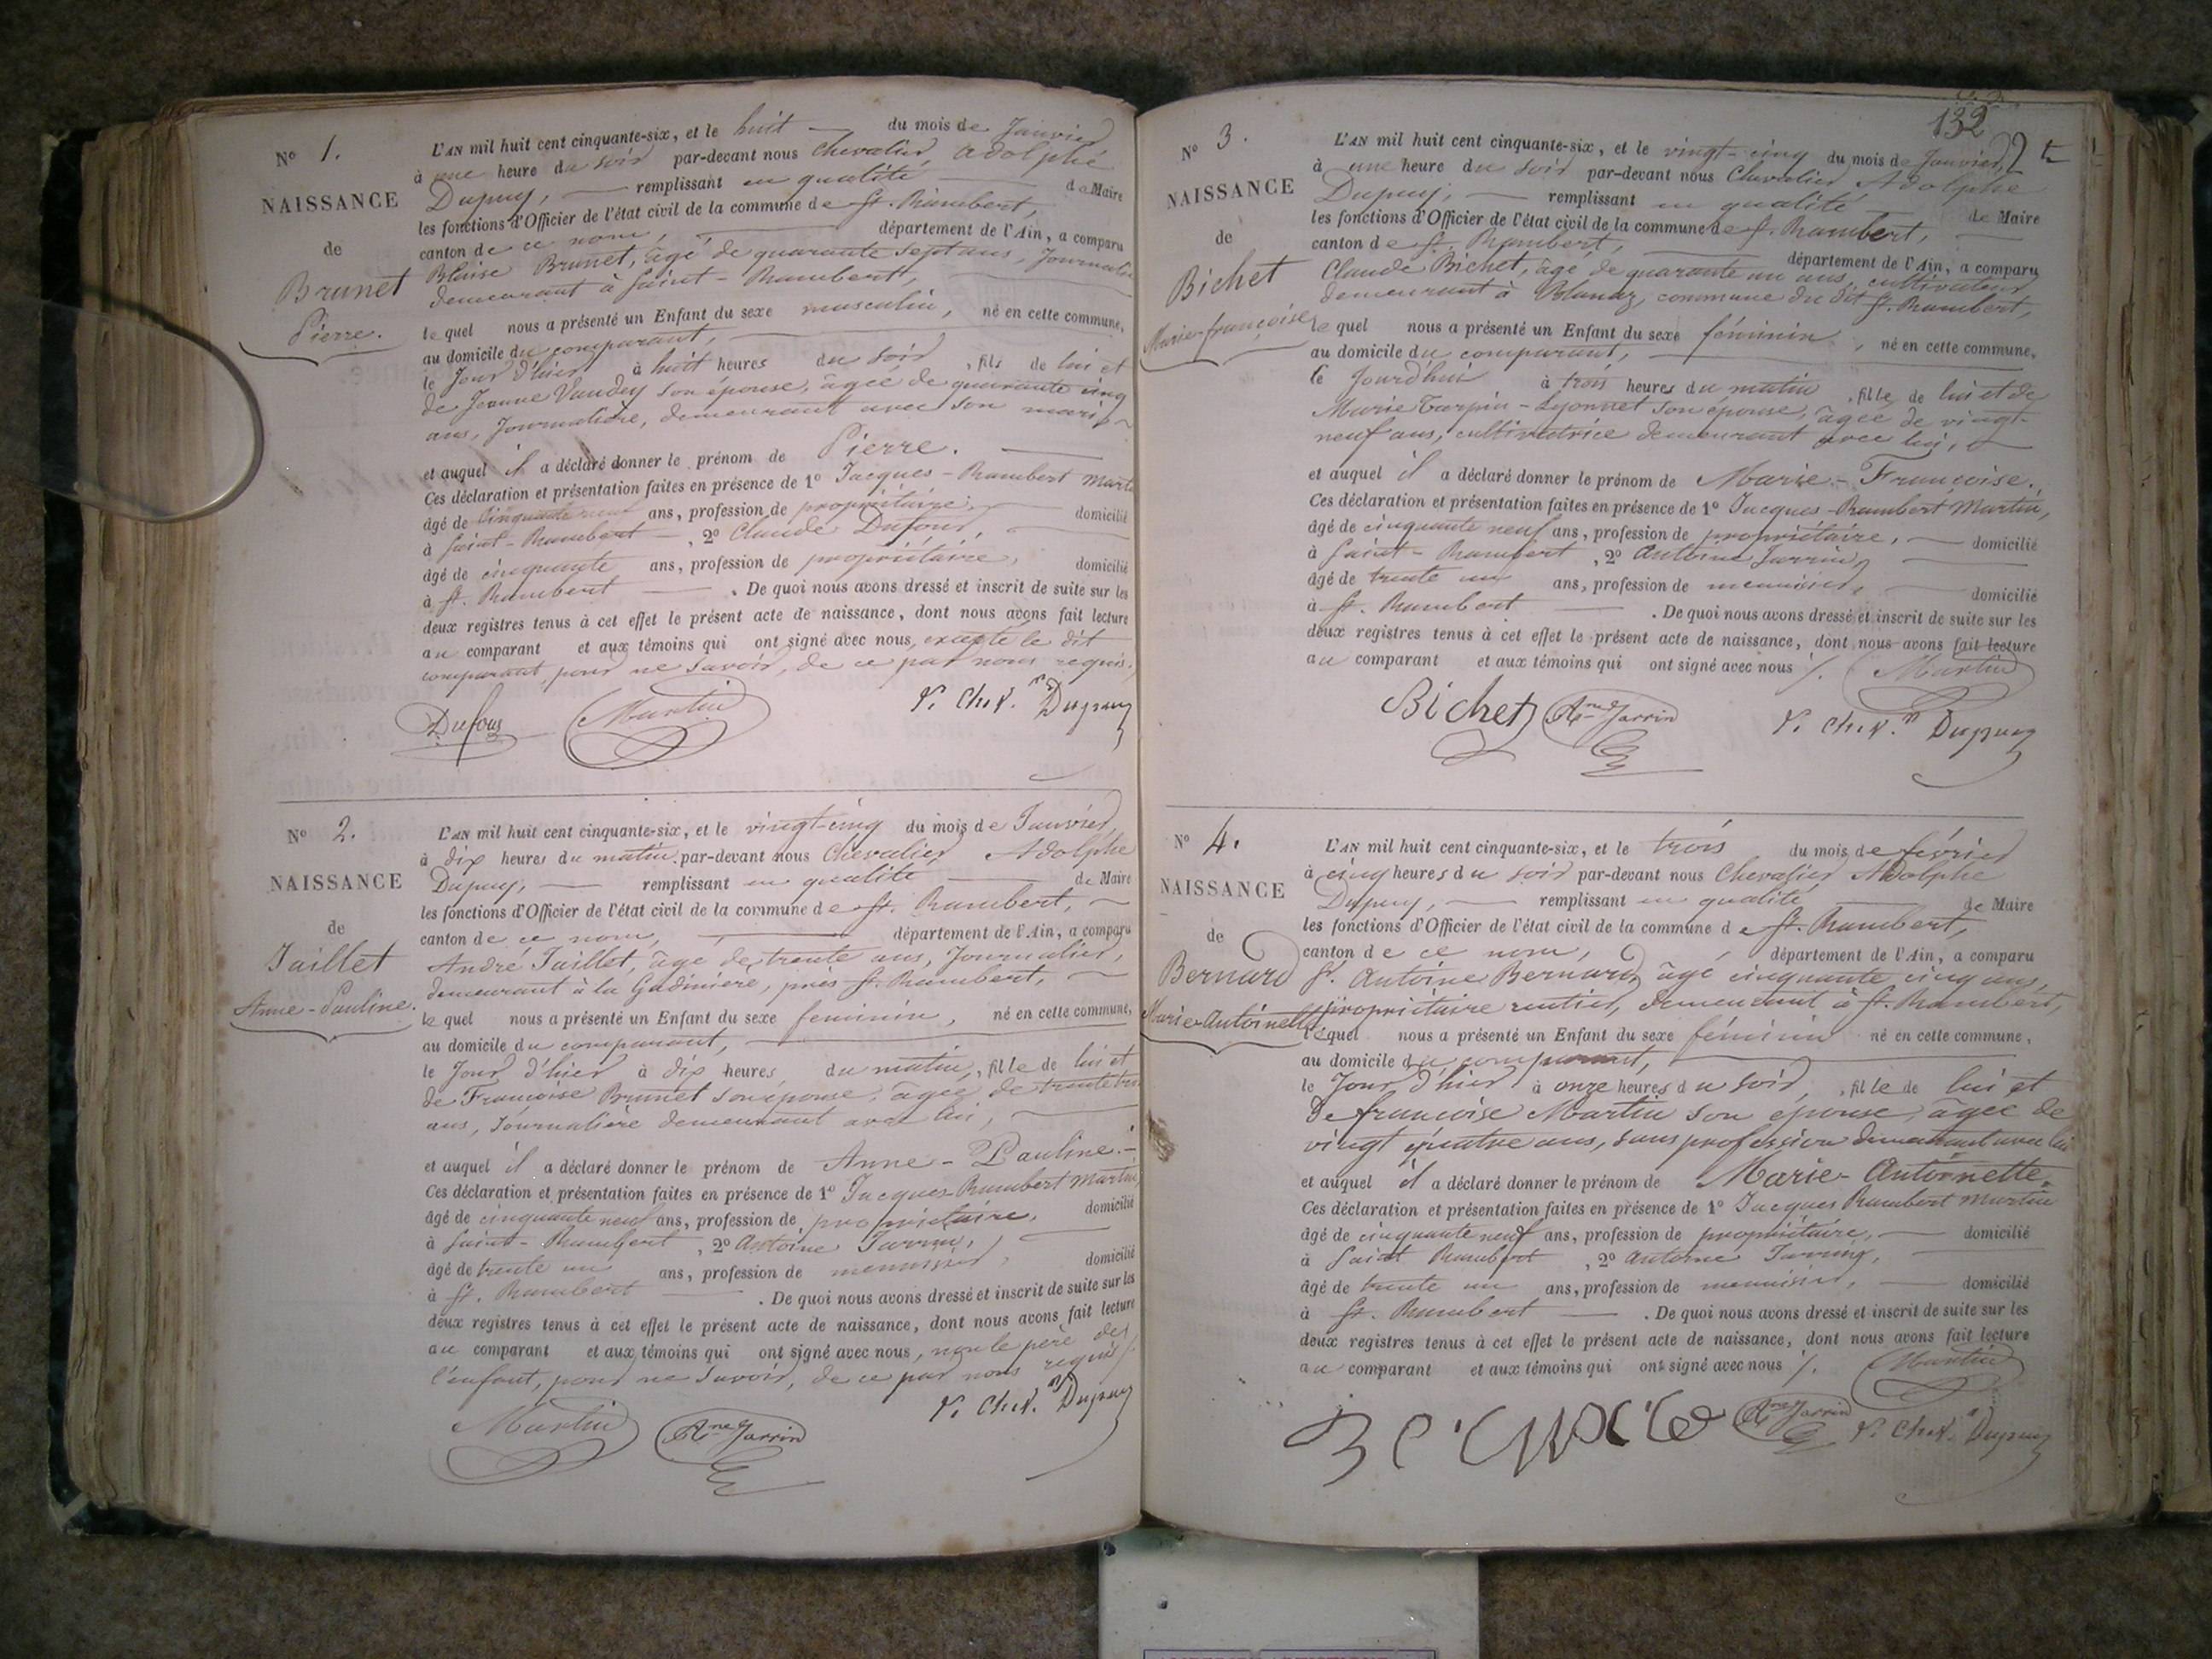 N° 1.
NAISSANCE
de
Brunet
Pierre.
L'AN mil huit cent cinquante-six, et le huit du mois de Janvier
à une heure du soir par-devant nous Chevalier, Adolphe
Dupuy, remplissant en qualité de Maire
les fonctions d'Officier de l'état civil de la commune de St. Rambert,
canton de ce nom, département de l'Ain, a comparu
Blaise Brunet, âgé de quarante sept ans, Journalier
demeurant à Saint-Rambert,
lequel nous a présenté un Enfant du sexe masculin, né en cette commune,
au domicile du comparant,
le Jour d'hier à huit heures du soir, fils de lui et
de Jeanne Vaudey son épouse, âgée de quarante cinq
ans, Journalière, demeurant avec son mari,
et auquel il a déclaré donner le prénom de Pierre.
Ces déclaration et présentation faites en présence de 1° Jacques-Rambert Martin
âgé de cinquante neuf ans, profession de propriétaire, domicilié
à Saint-Rambert, 2° Claude Dufour,
âgé de cinquante ans, profession de propriétaire, domicilié
à St. Rambert. De quoi nous avons dressé et inscrit de suite sur les
deux registres tenus à cet effet le présent acte de naissance, dont nous avons fait lecture
au comparant et aux témoins qui ont signé avec nous, excepté le dit
comparant, pour ne savoir, de ce par nous requis.
Dufour Martin V. Chev. Dupuy
N° 2.
NAISSANCE
de
Jaillet
Anne-Pauline.
L'AN mil huit cent cinquante-six, et le vingt-cinq du mois de Janvier,
à dix heures du matin par-devant nous Chevalier Adolphe
Dupuy, remplissant en qualité de Maire
les fonctions d'Officier de l'état civil de la commune de St. Rambert,
canton de ce nom, département de l'Ain, a comparu
André Jaillet, âgé de trente ans, Journalier,
demeurant à la Gadinière, près St. Rambert,
lequel nous a présenté un Enfant du sexe féminin, né en cette commune,
au domicile du comparant,
le Jour d'hier à dix heures du matin, fille de lui et
de Françoise Brunet son épouse, âgée de trente trois
ans, Journalière demeurant avec lui,
et auquel il a déclaré donner le prénom de Anne-Pauline.
Ces déclaration et présentation faites en présence de 1° Jacques-Rambert Martin
âgé de cinquante neuf ans, profession de propriétaire, domicilié
à Saint-Rambert, 2° Antoine Jarrin,
âgé de trente un ans, profession de menuisier, domicilié
à St. Rambert. De quoi nous avons dressé et inscrit de suite sur les
deux registres tenus à cet effet le présent acte de naissance, dont nous avons fait lecture
au comparant et aux témoins qui ont signé avec nous, non le père de
l'enfant, pour ne savoir, de ce par nous requis.
Martin Ane Jarrin V. Chev. Dupuy
132
N° 3.
NAISSANCE
de
Bichet
Marie-françoise
L'AN mil huit cent cinquante-six, et le vingt-cinq du mois de Janvier,
à une heure du soir par-devant nous Chevalier Adolphe
Dupuy, remplissant en qualité de Maire
les fonctions d'Officier de l'état civil de la commune de St. Rambert,
canton de St. Rambert, département de l'Ain, a comparu
Claude Bichet, âgé de quarante un ans, cultivateur
demeurant à Blanaz, commune du dit St. Rambert,
lequel nous a présenté un Enfant du sexe féminin, né en cette commune,
au domicile du comparant,
le Jourd'hui à trois heures du matin, fille de lui et de
Marie Turpin-Lyonnet son épouse, âgée de vingt-
neuf ans, cultivatrice demeurant avec lui,
et auquel il a déclaré donner le prénom de Marie-Françoise.
Ces déclaration et présentation faites en présence de 1° Jacques-Rambert Martin,
âgé de cinquante neuf ans, profession de propriétaire, domicilié
à Saint-Rambert, 2° Antoine Jarrin,
âgé de trente un ans, profession de menuisier, domicilié
à St. Rambert. De quoi nous avons dressé et inscrit de suite sur les
deux registres tenus à cet effet le présent acte de naissance, dont nous avons fait lecture
au comparant et aux témoins qui ont signé avec nous ⁒. Martin
Bichet Ane Jarrin V. Chev. Dupuy
N° 4.
NAISSANCE
de
Bernard
Marie-Antoinette
L'AN mil huit cent cinquante-six, et le trois du mois de février
à cinq heures du soir par-devant nous Chevalier Adolphe
Dupuy, remplissant en qualité de Maire
les fonctions d'Officier de l'état civil de la commune de St. Rambert,
canton de ce nom, département de l'Ain, a comparu
Sr. Antoine Bernard, âgé cinquante cinq ans,
propriétaire rentier, demeurant à St. Rambert,
lequel nous a présenté un Enfant du sexe féminin né en cette commune,
au domicile du comparant,
le Jour d'hier à onze heures du soir, fille de lui et
de françoise Martin son épouse, âgée de
vingt quatre ans, sans profession demeurant avec lui
et auquel il a déclaré donner le prénom de Marie-Antoinette.
Ces déclaration et présentation faites en présence de 1° Jacques Rambert Martin
âgé de cinquante neuf ans, profession de propriétaire, domicilié
à Saint Rambert, 2° Antoine Jarrin,
âgé de trente un ans, profession de menuisier, domicilié
à St. Rambert. De quoi nous avons dressé et inscrit de suite sur les
deux registres tenus à cet effet le présent acte de naissance, dont nous avons fait lecture
au comparant et aux témoins qui ont signé avec nous ⁒. Martin
Ane Jarrin V. Chev. Dupuy